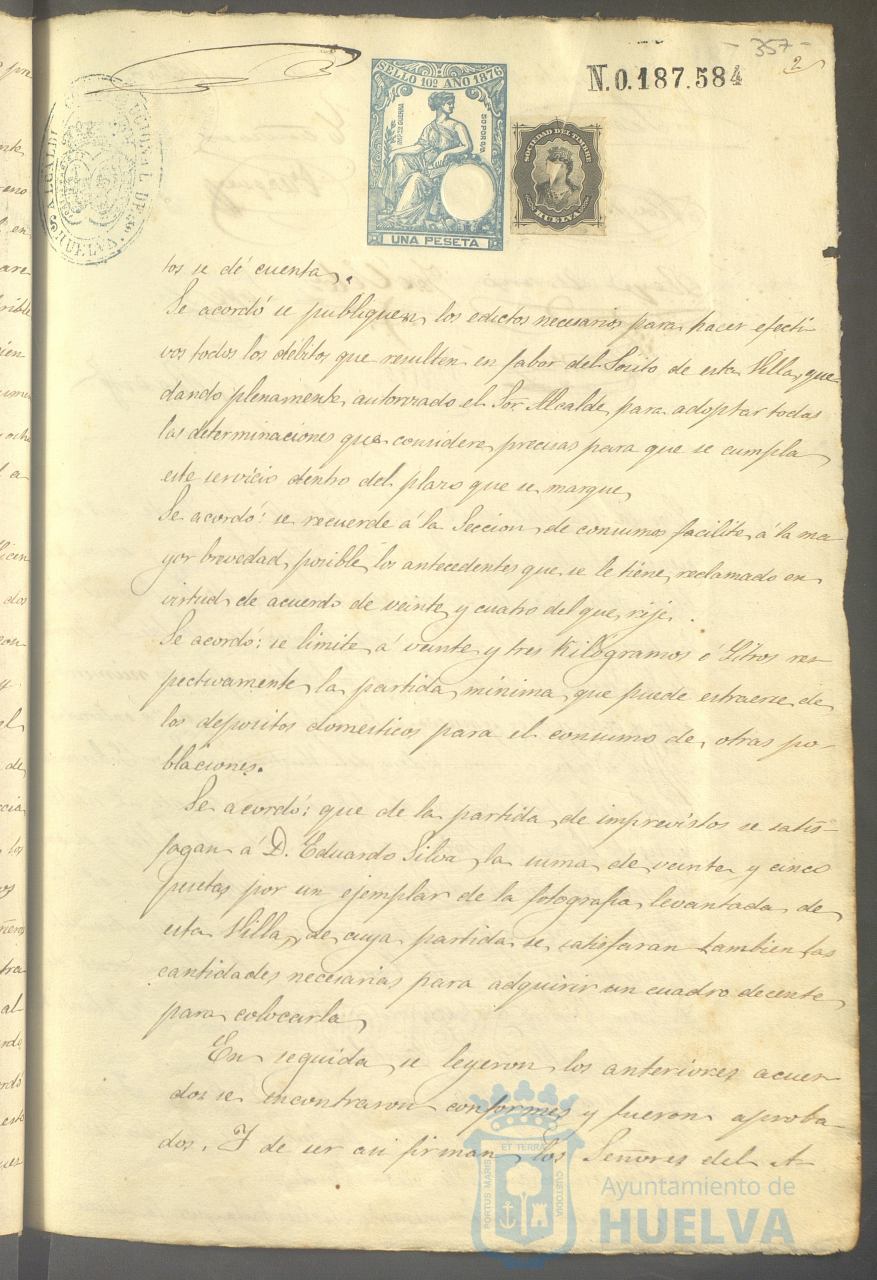 - 357 -
2
N.0.187.584
SELLO 10º AÑO 1876
IMPTO GUERRA
50 POR 0/0
UNA PESETA
SOCIEDAD DEL TIMBRE
HUELVA
ALCALDIA
HUELVA
tos se dé cuenta.
Se acordó se publiquen los edictos necesarios para hacer efecti-
vos todos los débitos que resulten en fabor del Pósito de esta Villa, que-
dando plenamente autorizado el Sor. Alcalde para adoptar todas
las determinaciones que considere precisas para que se cumpla
este servicio dentro del plazo que se marque
Se acordó: se recuerde á la Seccion de consumos facilite á la ma-
yor brevedad posible los antecedentes que se le tiene reclamado en
virtud de acuerdo de veinte y cuatro del que rije.
Se acordó: se limite á veinte y tres Kilógramos ó Litros res-
pectivamente la partida mínima que puede estraerse de
los depositos domésticos para el consumo de otras po-
blaciones.
Se acordó: que de la partida de imprevistos se satis-
fagan á D. Eduardo Silva la suma de veinte y cinco
pesetas por un ejemplar de la fotografia levantada de
esta Villa, de cuya partida se satisfaran tambien las
cantidades necesarias para adquirir un cuadro decente
para colocarla
En seguida se leyeron los anteriores acuer-
dos se encontraron conformes y fueron aproba-
dos. Y de ser asi firman los Señores del A-
PORTUS MARIS ET TERRAE CUSTODIA
Ayuntamiento de
HUELVA